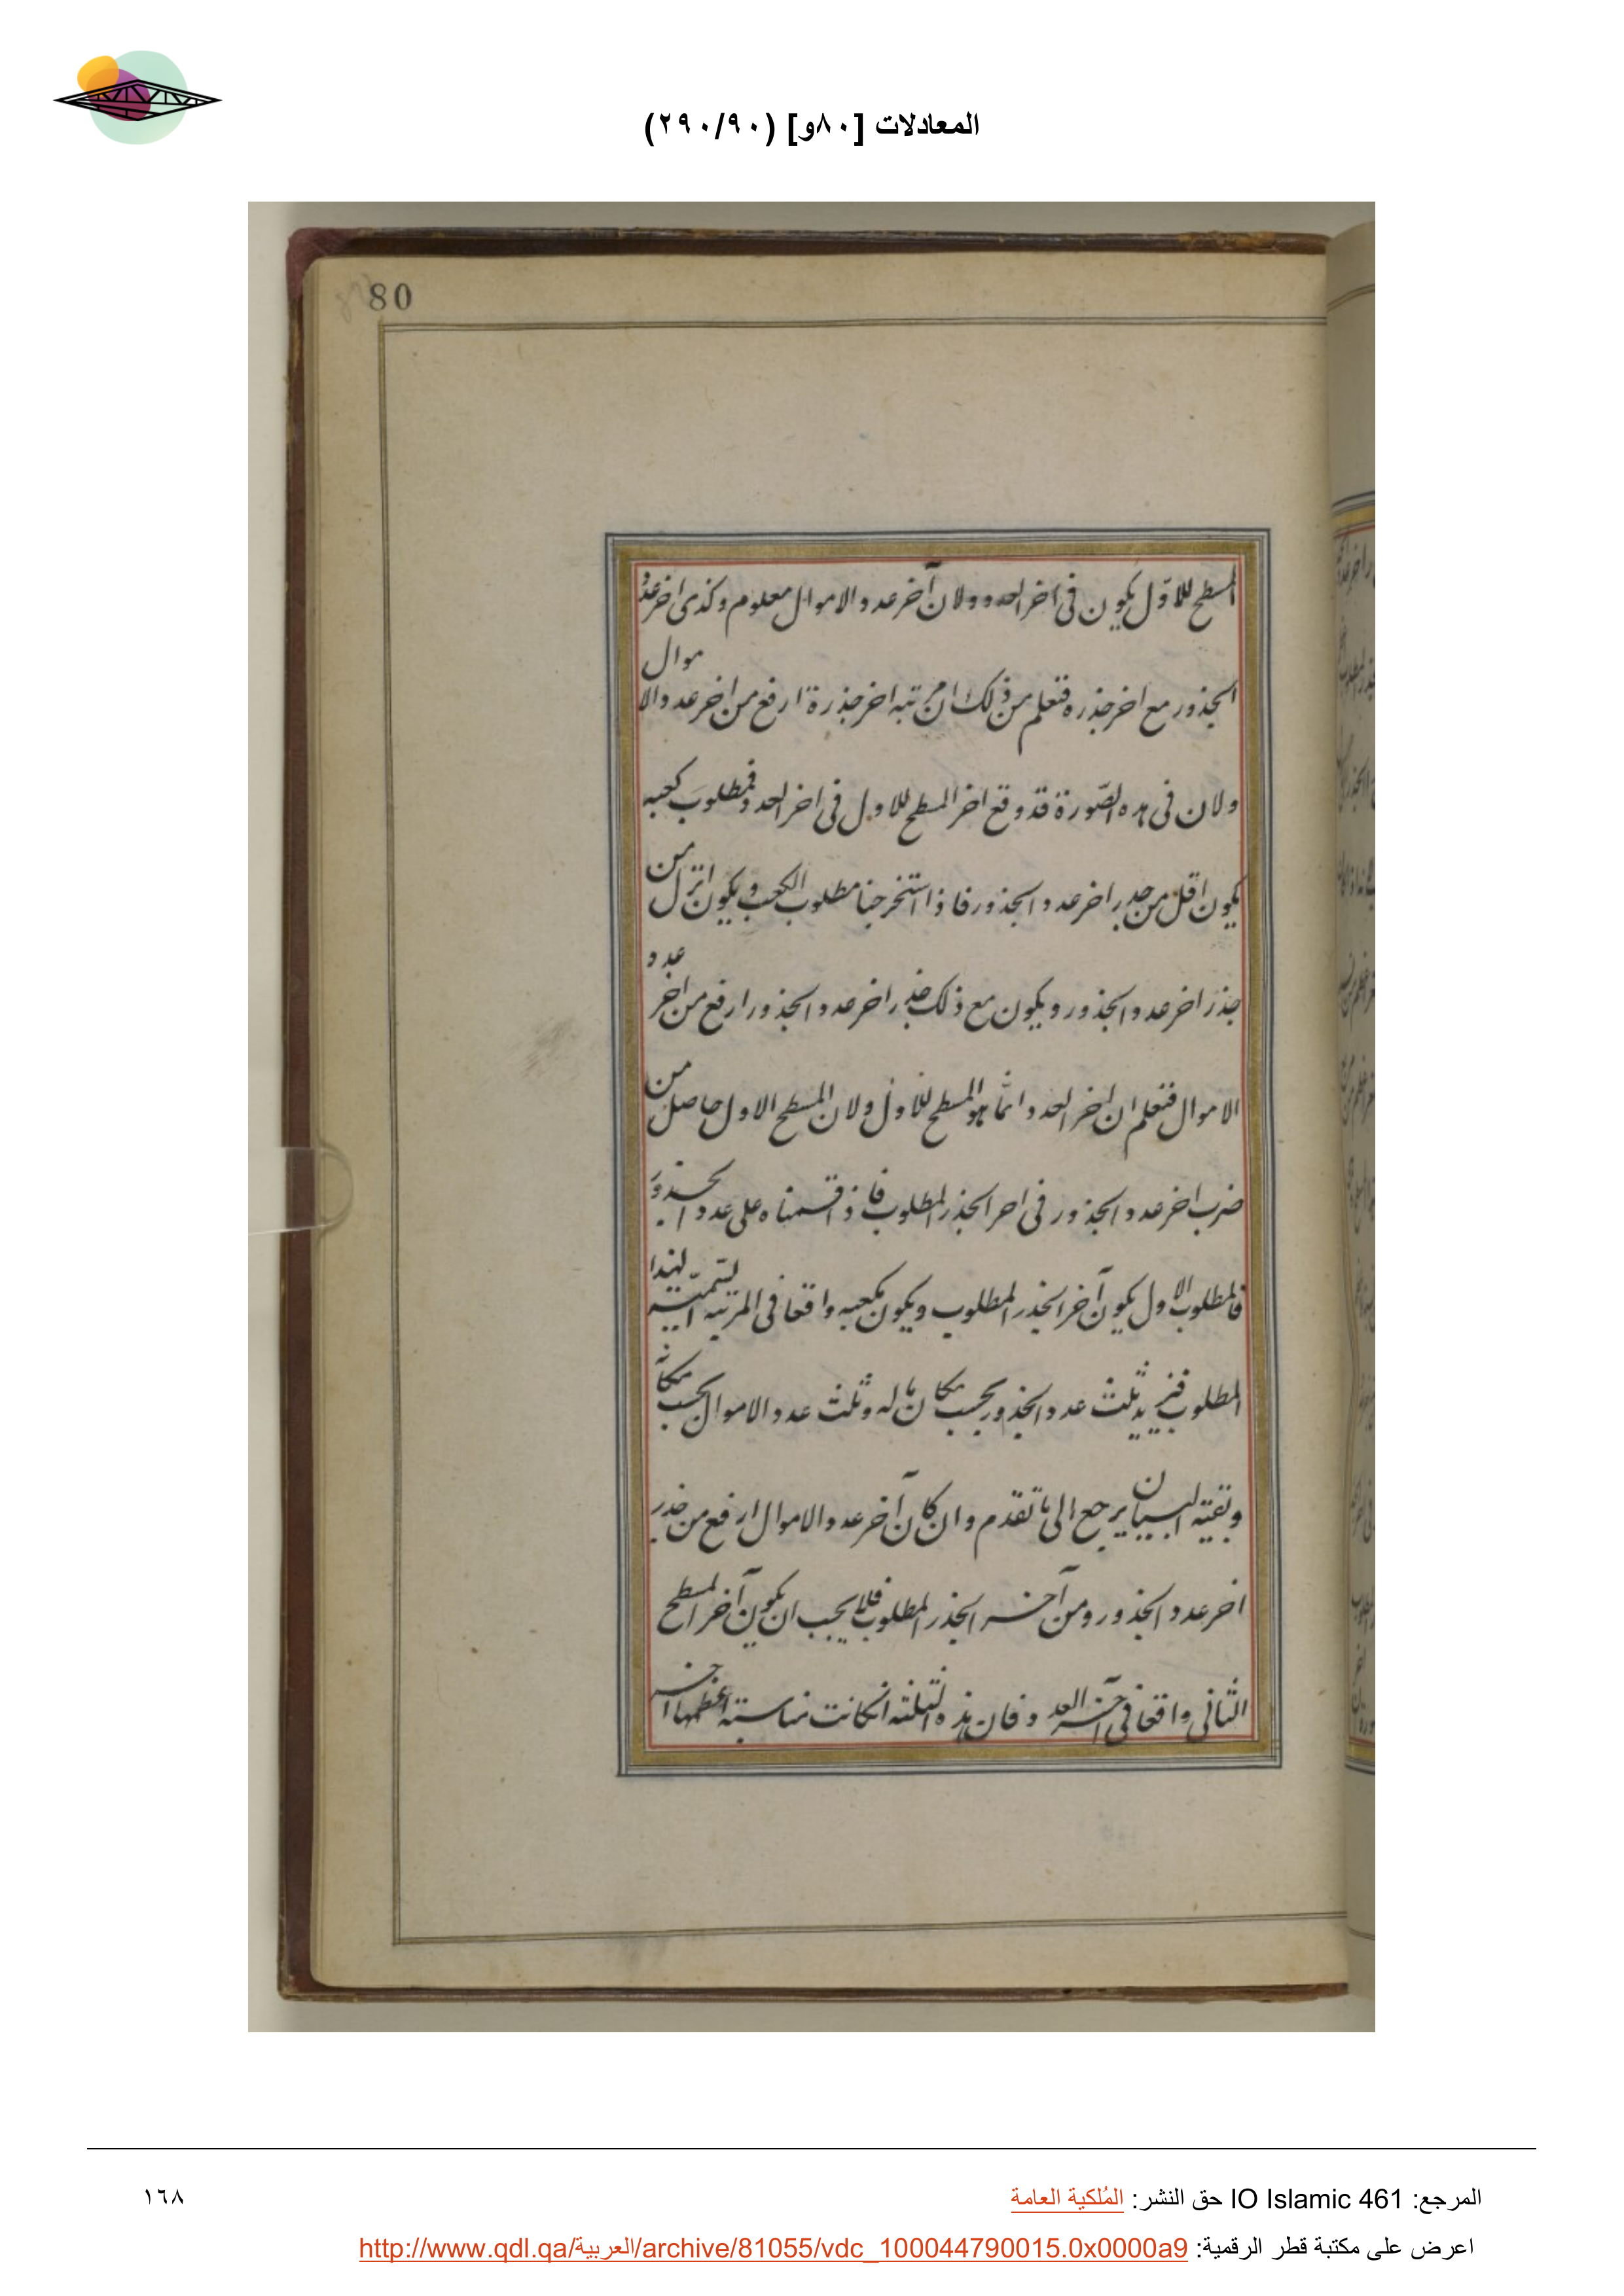 المعادلات [٨٠و] (٢٩٠/٩٠)
80
المسطح للاول يكون فى اخر العدد ولان آخر عدد الاموال معلوم وكذى اخر عدد
الجذور مع اخر جذره فتعلم من ذلك ان مرتبه اخر جذرة ارفع من اخر عدد الاموال
ولان فى هذه الصّورة قد وقع اخر المسطح للاول فى اخر العدد فمطلوب كعبه
يكون اقل من جذر اخر عدد الجذور فاذا استخرجنا مطلوب الكعب ويكون انزل من
جذر اخر عدد الجذور ويكون مع ذلك جذر اخر عدد الجذور ارفع من اخر عدد
الاموال فتعلم ان اخر العدد انما هو المسطح للاول ولان المسطح الاول حاصل من
ضرب اخر عدد الجذور فى اخر الجذر المطلوب فاذا قسمناه على عدد الجذور
فالمطلوب الاول يكون آخر الجذر المطلوب ويكون مكعبه واقعا فى المرتبه السميّه لهذا
المطلوب فنزيد ثلث عدد الجذور بحسب مكان ماله وثلث عدد الاموال بحسب مكانه
وبقيته البيان يرجع الى ما تقدم وان كان آخر عدد الاموال ارفع من جذر
اخر عدد الجذور ومن آخر الجذر المطلوب فلا يجب ان يكون آخر المسطح
الثانى واقعا فى آخر العدد فان هذه الثلثه ان كانت متناسبة اعظمها اخر
المرجع: IO Islamic 461 حق النشر: المُلكية العامة
١٦٨
اعرض على مكتبة قطر الرقمية: http://www.qdl.qa/العربية/archive/81055/vdc_100044790015.0x0000a9